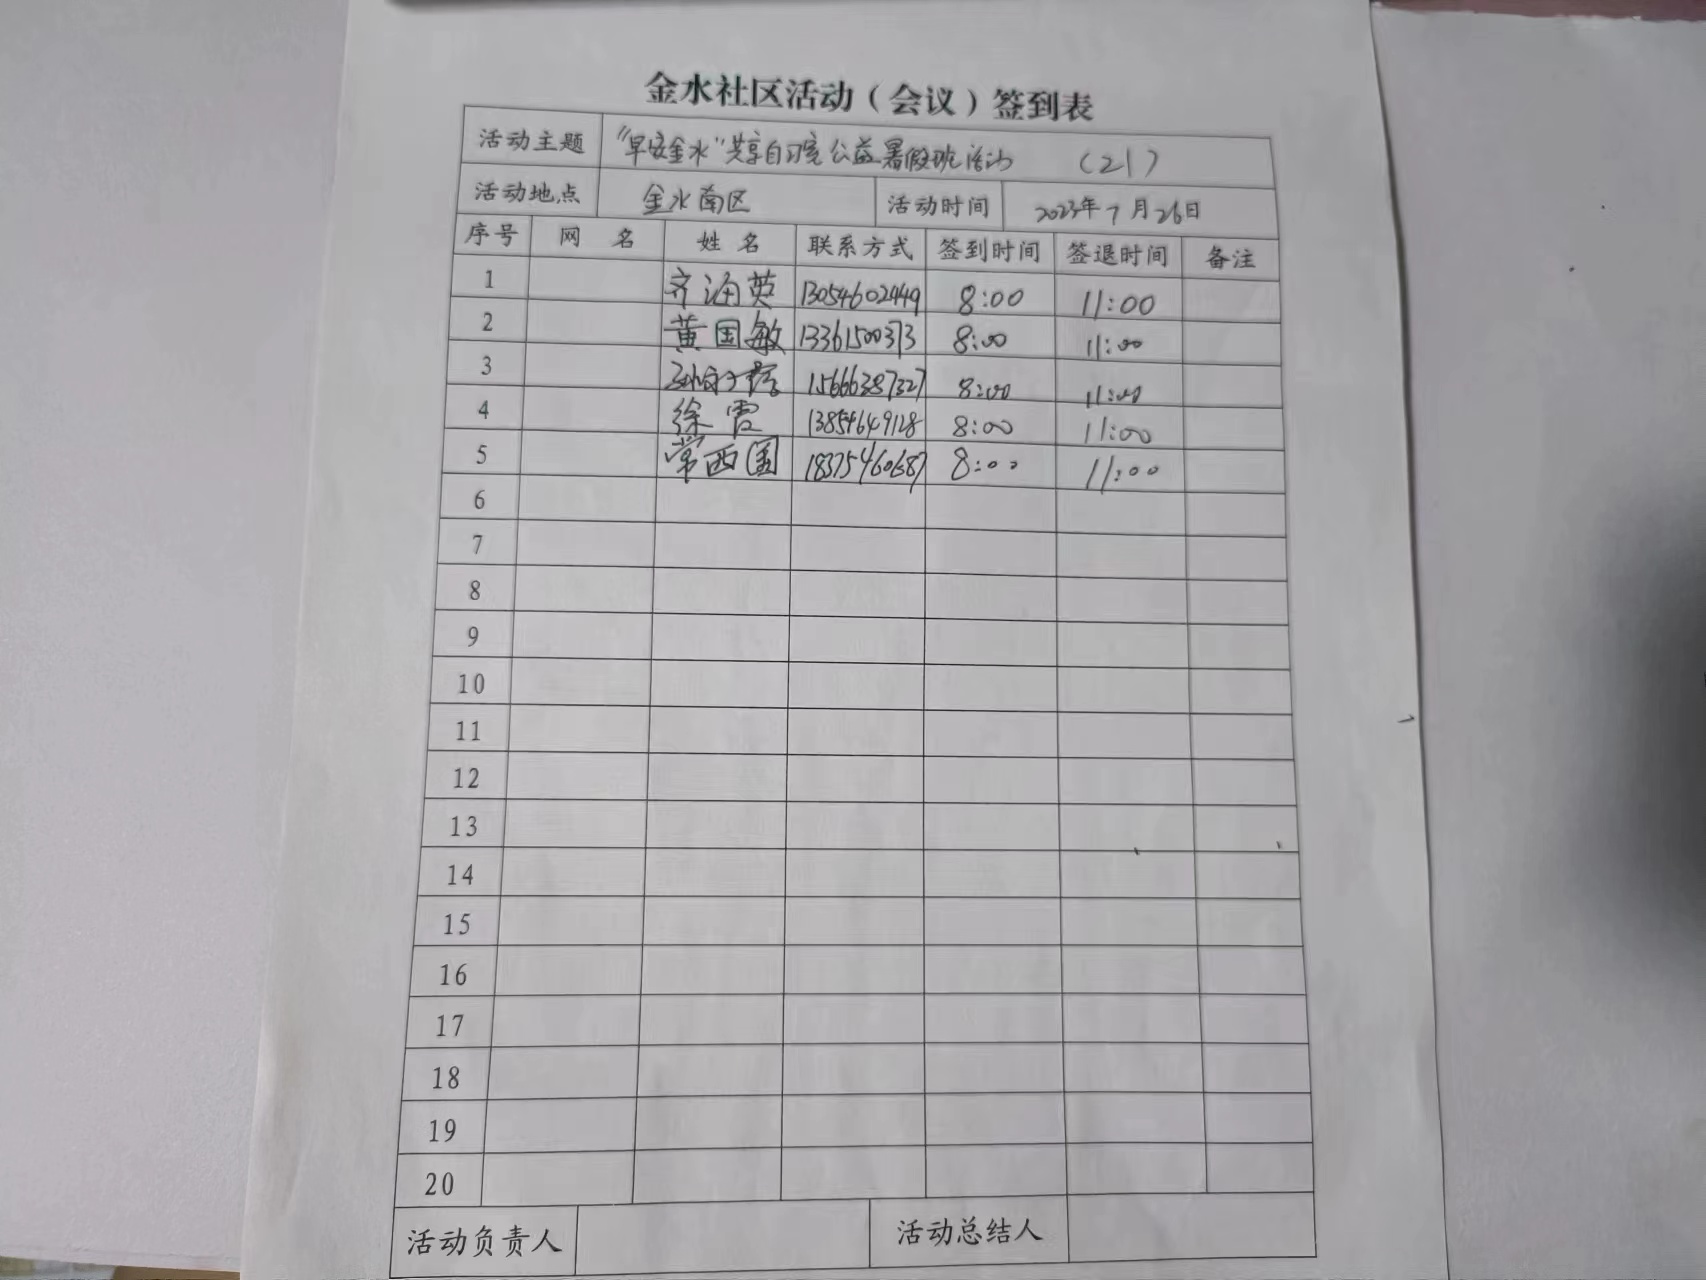 金水社区活动（会议）签到表
活动主题 "早安金水"共享自习室公益暑假班活动 （21）
活动地点 金水南区 活动时间 2023年7月26日
序号 网 名 姓 名 联系方式 签到时间 签退时间 备注
1 齐海英 13054602449 8:00 11:00
2 黄国敏 13361500373 8:00 11:00
3 15666387327 8:00 11:00
4 徐霞 13854649128 8:00 11:00
5 常西国 18375460687 8:00 11:00
6
7
8
9
10
11
12
13
14
15
16
17
18
19
20
活动负责人 活动总结人